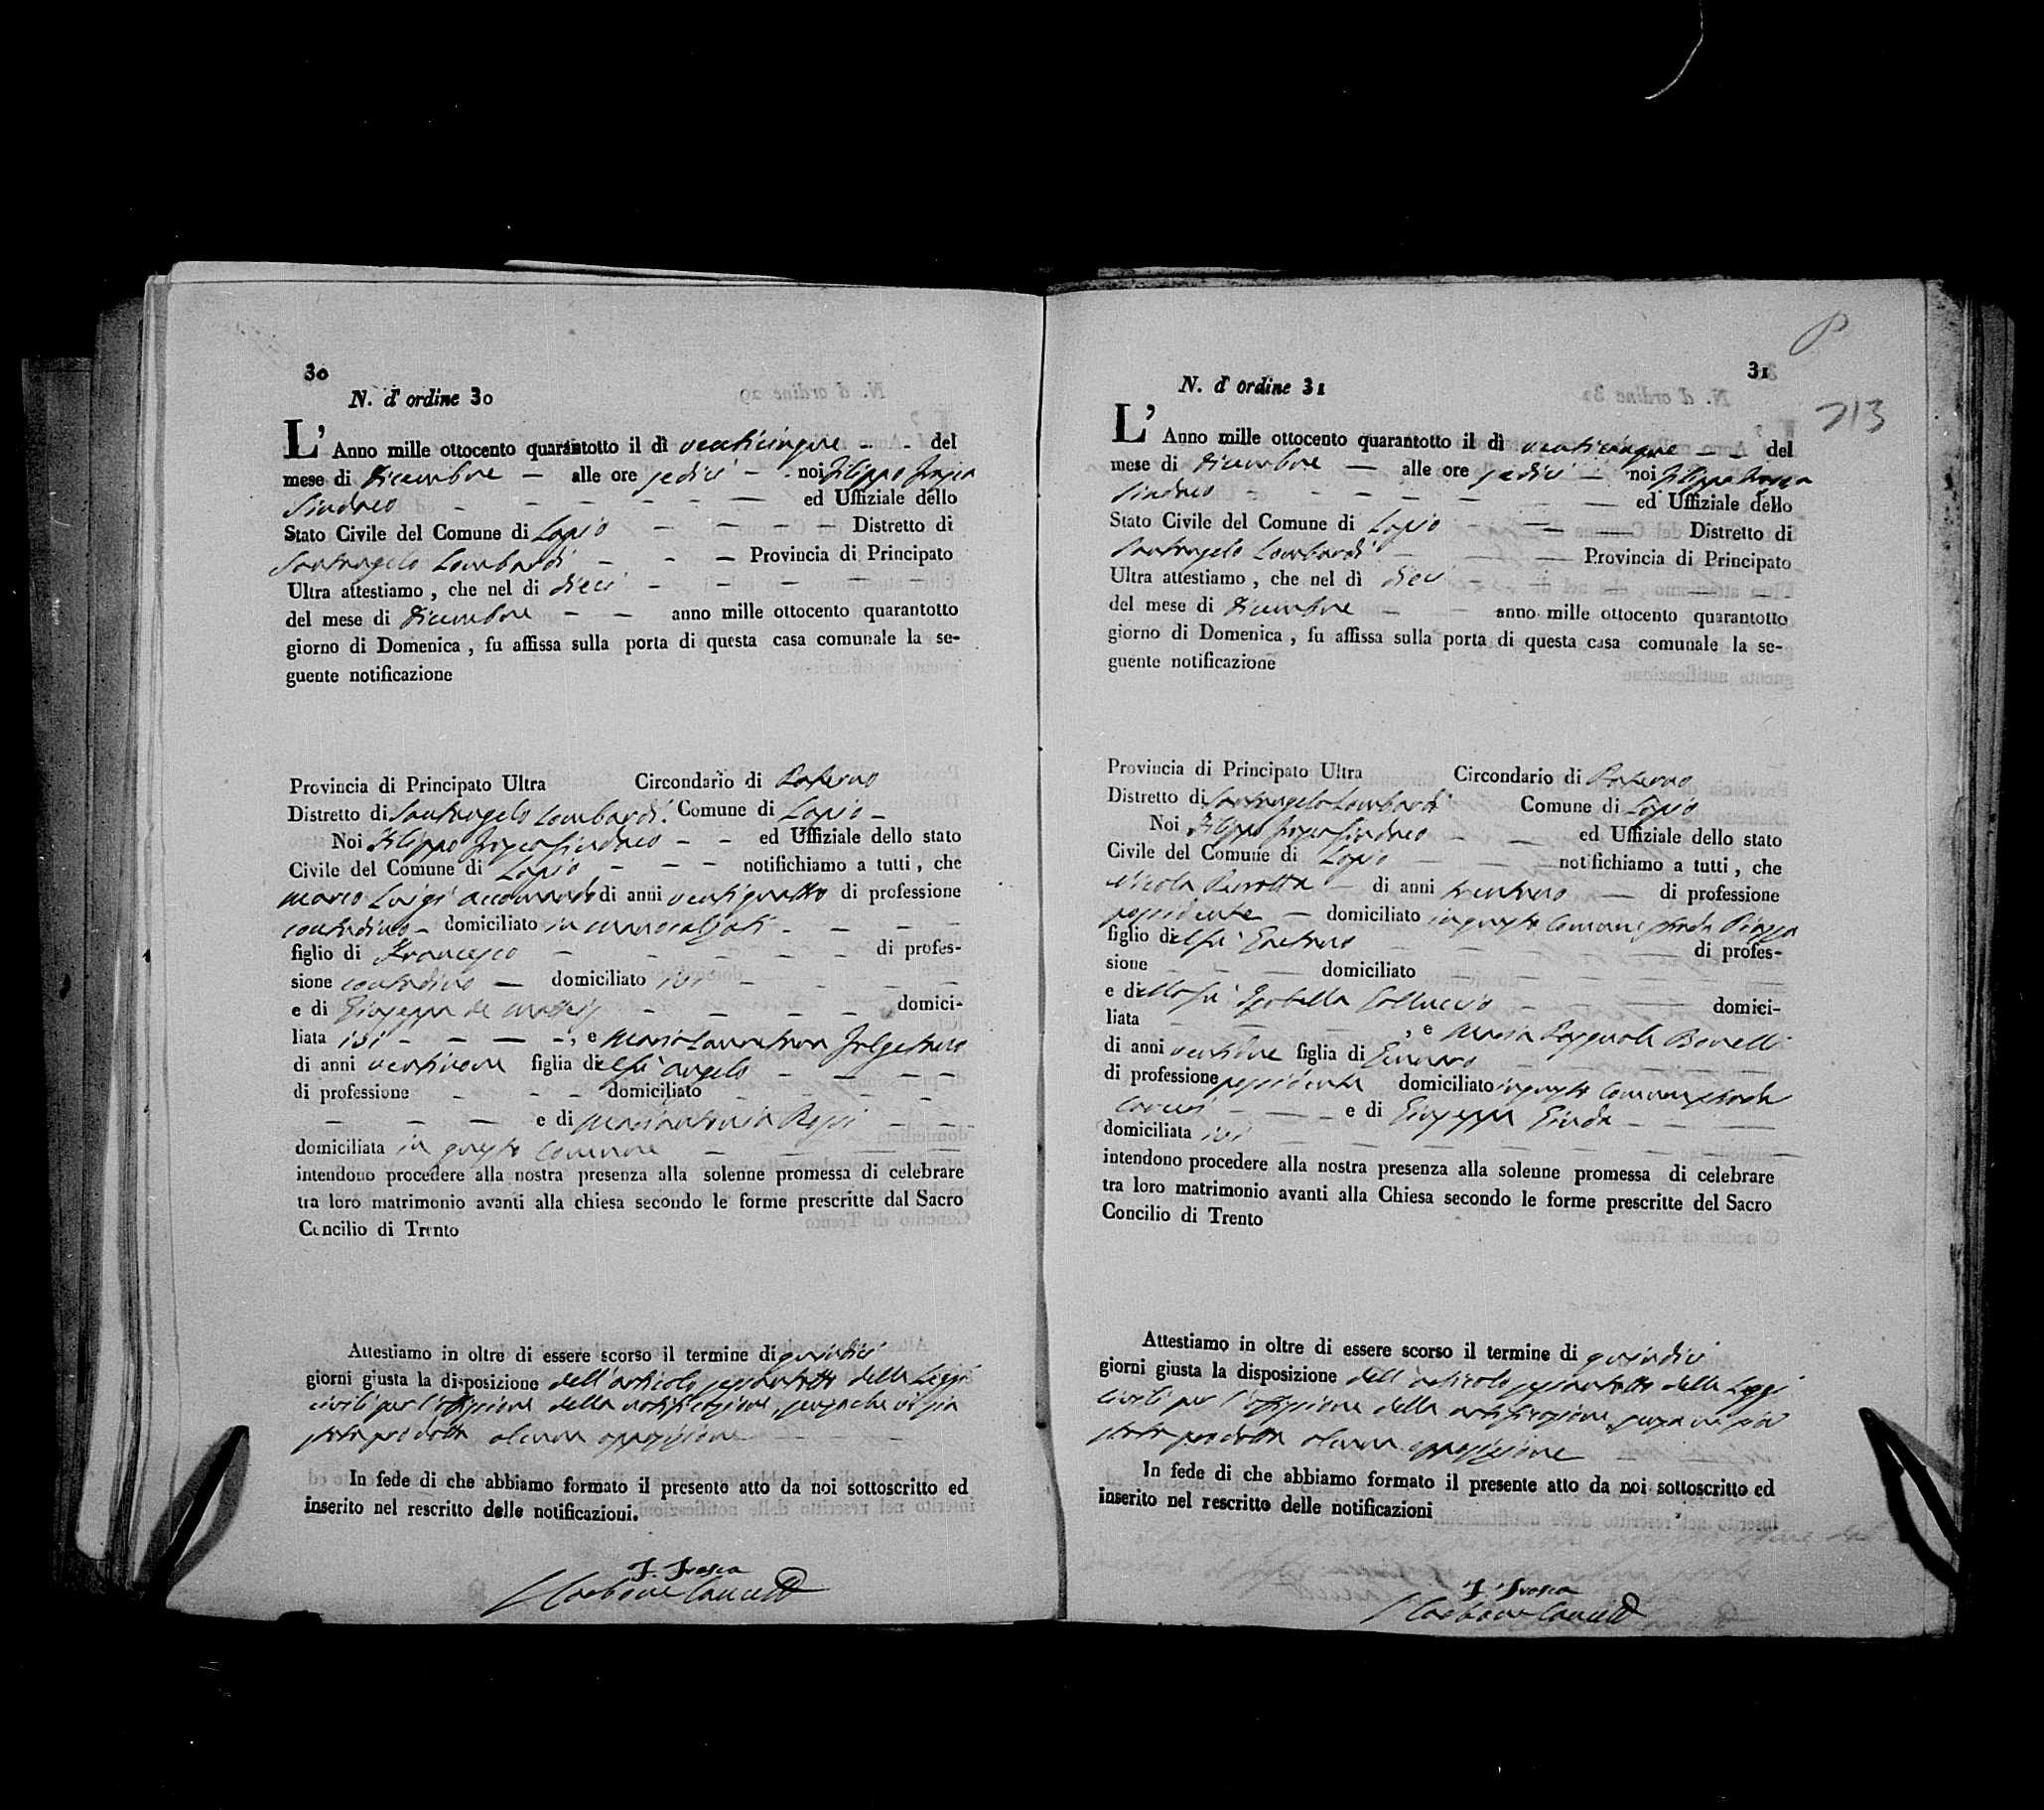 30
N. d' ordine 30
L' Anno mille ottocento quarantotto il dì venticinque del
mese di Dicembre alle ore sedici noi Filippo Frasca
Sindaco ed Uffiziale dello
Stato Civile del Comune di Lapio Distretto di
Santangelo Lombardi Provincia di Principato
Ultra attestiamo, che nel di dieci
del mese di Dicembre anno mille ottocento quarantotto
giorno di Domenica, fu affissa sulla porta di questa casa comunale la se-
guente notificazione
Provincia di Principato Ultra Circondario di Paterno
Distretto di Santangelo Lombardi. Comune di Lapio
Noi Filippo Frasca Sindaco ed Uffiziale dello stato
Civile del Comune di Lapio notifichiamo a tutti, che
Marco Luigi Accomando di anni ventiquattro di professione
contadino domiciliato in Manocalzati
figlio di Francesco di profes-
sione contadino domiciliato ivi
e di Giuseppa de Matteis domici-
liata ivi, e Maria
di anni figlia di Angelo
di professione domiciliato
e di Mariantonia Rossi
domiciliata in questo Comune
intendono procedere alla nostra presenza alla solenne promessa di celebrare
tra loro matrimonio avanti alla chiesa secondo le forme prescritte dal Sacro
Concilio di Trento
Attestiamo in oltre di essere scorso il termine di quindici
giorni giusta la disposizione dell'articolo sessantotto delle Leggi
civili per l'affissione della notificazione, senza che vi sia
stata prodotta alcuna opposizione
In fede di che abbiamo formato il presente atto da noi sottoscritto ed
inserito nel rescritto delle notificazioni.
F. Frasca
Carbone
31
713
N. d' ordine 31
L' Anno mille ottocento quarantotto il dì venticinque del
mese di Dicembre alle ore sedici noi Filippo Frasca
Sindaco ed Uffiziale dello
Stato Civile del Comune di Lapio Distretto di
Santangelo Lombardi Provincia di Principato
Ultra attestiamo, che nel dì dieci
del mese di Dicembre anno mille ottocento quarantotto
giorno di Domenica, fu affissa sulla porta di questa casa comunale la se-
guente notificazione
Provincia di Principato Ultra Circondario di Paterno
Distretto di Santangelo Lombardi Comune di Lapio
Noi Filippo Frasca Sindaco ed Uffiziale dello stato
Civile del Comune di Lapio notifichiamo a tutti, che
Nicola Perrotta di anni trentuno di professione
possidente domiciliato in questo Comune strada Piazza
figlio di Gaetano di profes-
sione domiciliato
e di Isabella Colluccio domici-
liata, e Maria Pasquala Bonelli
di anni ventidue figlia di Gennaro
di professione possidente domiciliato in questo Comune strada
e di Giuseppa
domiciliata ivi
intendono procedere alla nostra presenza alla solenne promessa di celebrare
tra loro matrimonio avanti alla Chiesa secondo le forme prescritte del Sacro
Concilio di Trento
Attestiamo in oltre di essere scorso il termine di quindici
giorni giusta la disposizione dell'articolo sessantotto delle Leggi
civili per l'affissione della notificazione, senza vi sia
stata prodotta alcuna opposizione
In fede di che abbiamo formato il presente atto da noi sottoscritto ed
inserito nel rescritto delle notificazioni
F. Frasca
Carbone